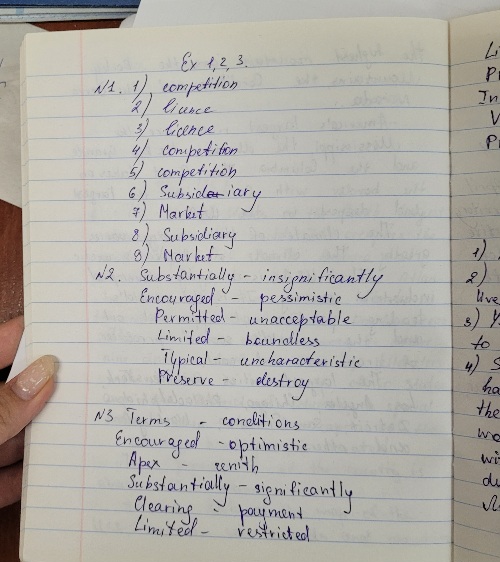 Ex 1, 2, 3.
№1. 1) competition
2) licence
3) licence
4) competition
5) competition
6) Subsidiary
7) Market
8) Subsidiary
9) Market
№2. Substantially - insignificantly
Encouraged - pessimistic
Permitted - unacceptable
Limited - boundless
Typical - uncharacteristic
Preserve - destroy
№3 Terms - conditions
Encouraged - optimistic
Apex - zenith
Substantially - significantly
Clearing - payment
Limited - restricted
Li
P
In
V
P
1)
2)
live
3) Y
to
4) S
ha
the
wo
wi
du